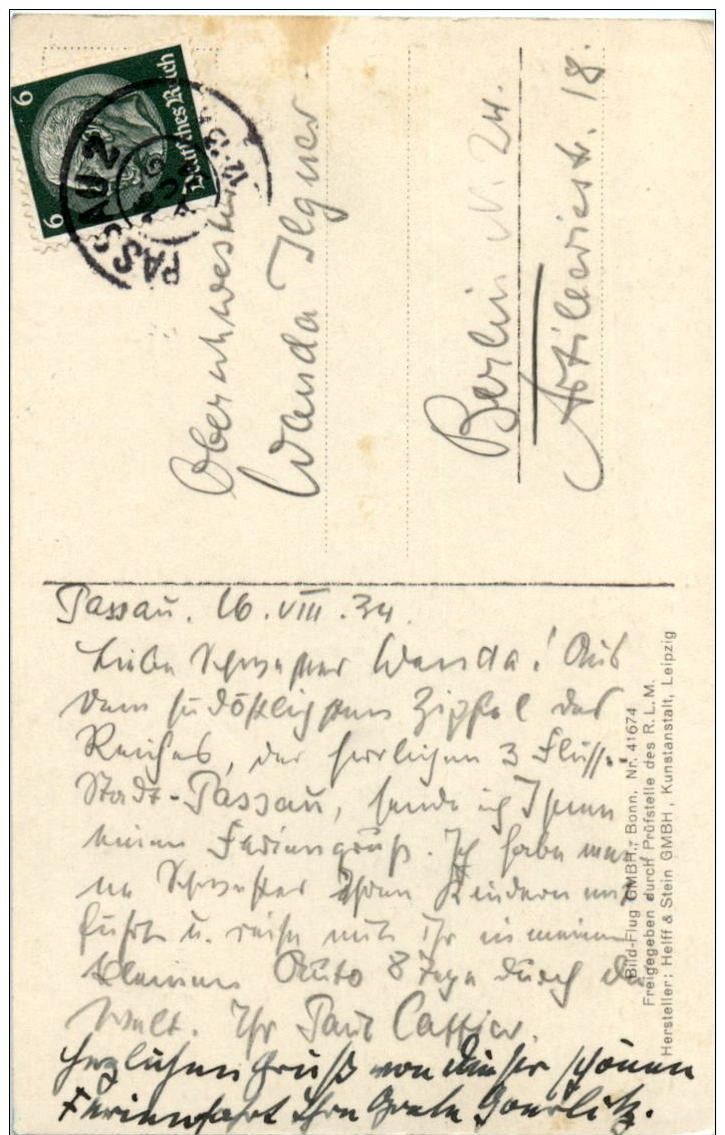 6
6
Deutsches Reich
PASSAU 2
12-13
Oberschwester
Wanda Ilgner
Berlin N. 24.
Artilleriestr. 18.
Passau. 16. VIII. 34.
Liebe Schwester Wanda! Aus
dem südöstlichsten Zipfel des
Reiches, der herrlichen 3 Flüsse-
Stadt-Passau, sende ich Ihnen
einen Feriengruß. Ich habe mei-
ne Schwester ihren Kindern ent-
führt u. reise mit ihr in meinem
kleinen Auto 8 Tage durch die
Welt. Ihr Paul
Herzlichen Gruß von dieser schönen
Ferienfahrt Ihre Grete Goerlitz.
Bild-Flug GMBH., Bonn, Nr. 41674
Freigegeben durch Prüfstelle des R.L.M.
Hersteller: Helff & Stein GMBH, Kunstanstalt, Leipzig